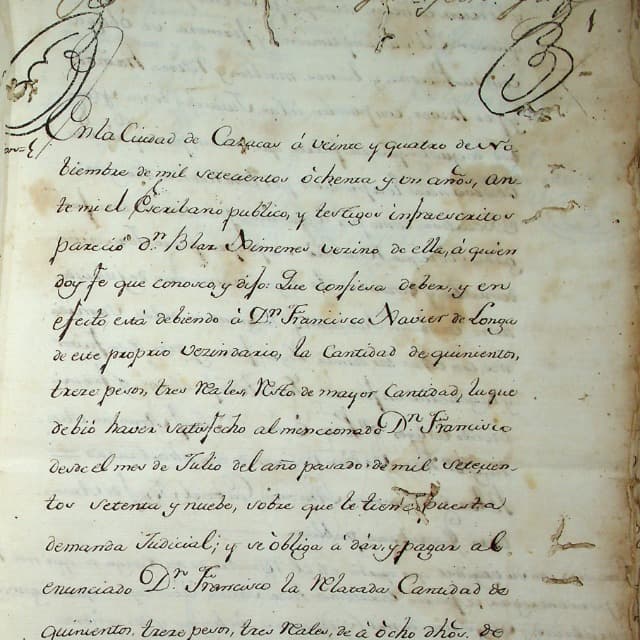 En la Ciudad de Caracas à veinte y quatro de No-
biembre de mil setecientos òchenta y un años, an-
te mi el Escribano publico, y testigos infraescritos
pareciò Dn. Blas Ximenes vezino de ella, à quien
doy fe que conosco, y dijo: Que confiesa deber, y en
efecto està debiendo à Dn. Francisco Xavier de Longa
de este proprio vezindario, la Cantidad de quinientos,
treze pesos, tres Rales, Rsto. de mayor Cantidad, la que
debiò haver satisfecho al mencionado Dn. Francisco
desde el mes de Julio del año pasado de mil setecien-
tos setenta y nuebe, sobre que le tiene puesta
demanda Judicial; y se òbliga à dàr, y pagar al
enunciado Dn. Francisco la Relatada Cantidad de
quinientos, treze pesos, tres Rales, de à òcho dhos. de